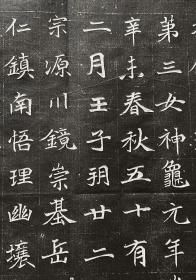 第三女神龜元年
辛未春秋五十有
二月壬子朔廿二
宗源川鏡崇基岳
仁鎮南悟理幽壤